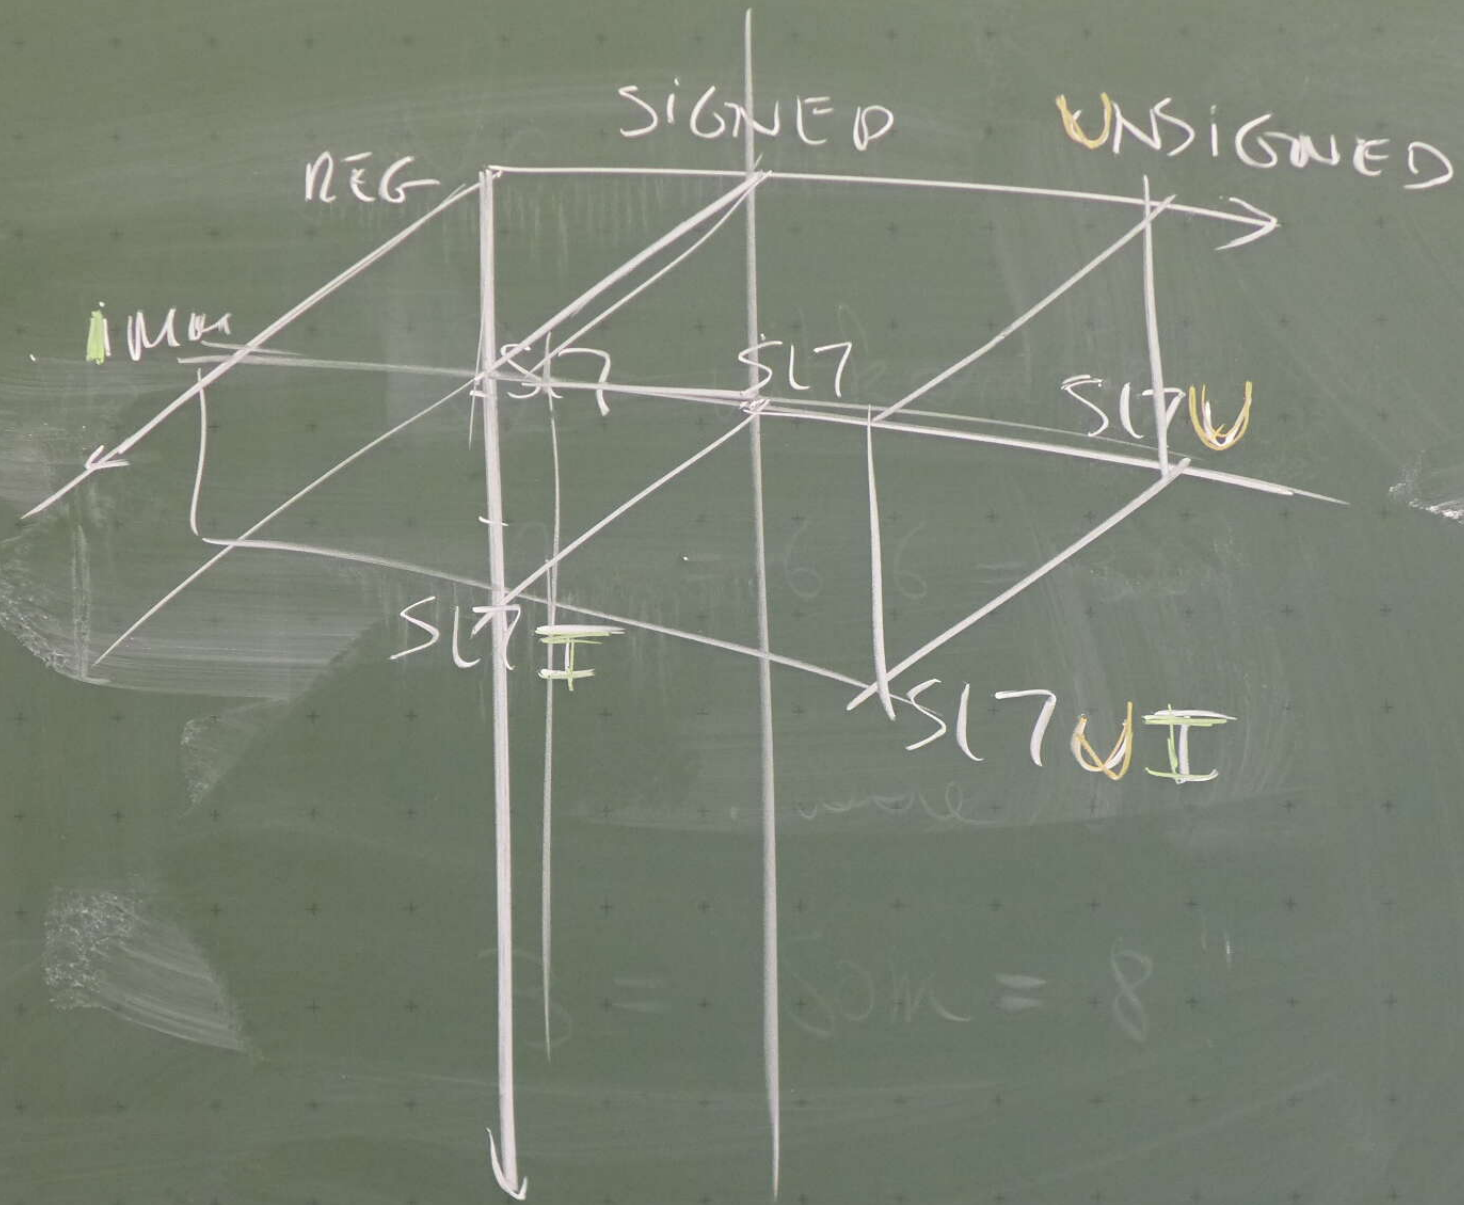 SIGNED UNSIGNED
REG
imm
SLT SLT SLTU
SLTI
SLTUI